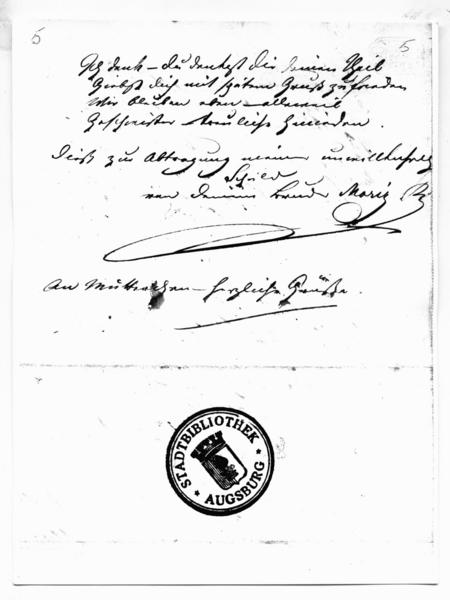 5 5
Ich denk – du denkest dir deinen Theil
Giebst dich mit spätem Gruß zufrieden
Wir bleiben eben – allweil
Geschwister traulich hinieden.
Dieß zur Abtragung meiner unwillkührl
Schuld
von deinem Bruder Moriz
An Mütterchen – herzliche Grüße.
STADTBIBLIOTHEK
AUGSBURG